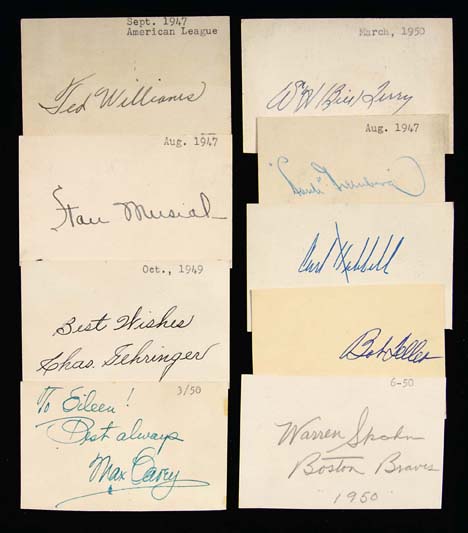 Sept. 1947
American League
Ted Williams
Aug. 1947
Stan Musial
Oct., 1949
Best Wishes
Chas. Gehringer
3/50
To Eileen!
Best always
Max Carey
March, 1950
Bill Terry
Aug. 1947
"Hank" Greenberg
Carl Hubbell
Bob Feller
6-50
Warren Spahn
Boston Braves
1950